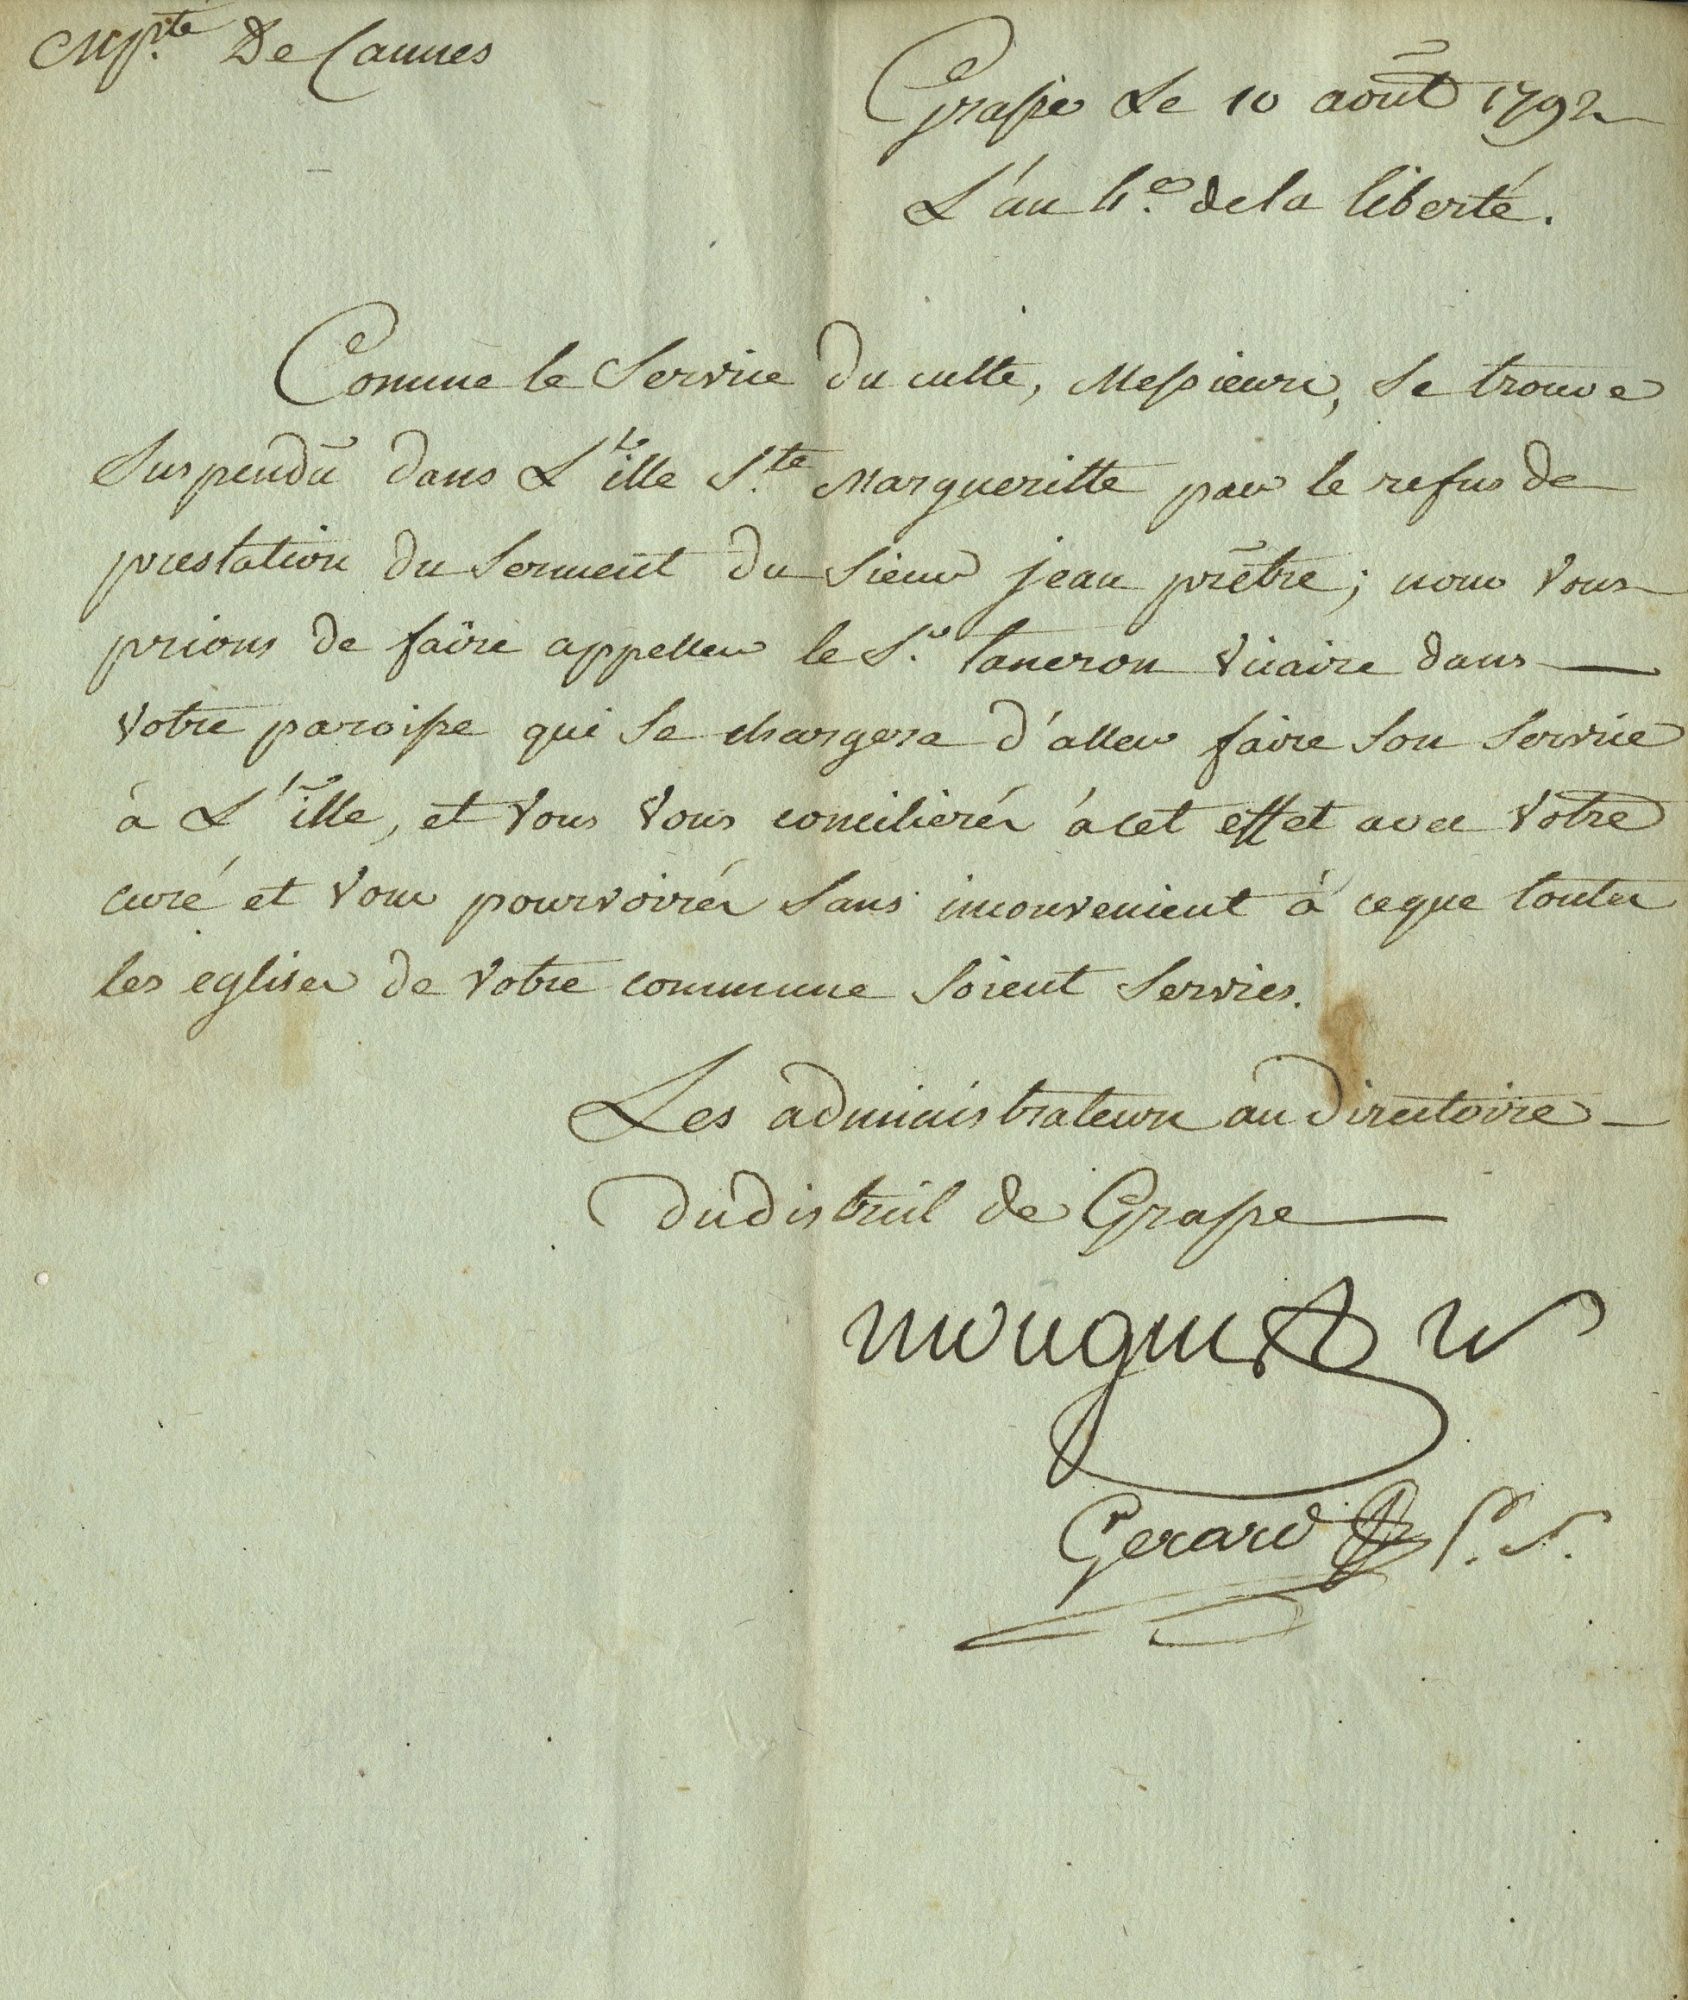 Mp.té De Cannes
Grasse Le 10 août 1792
L'an 4.e de la liberté.
Comme le Service du culte, Messieurs, Se trouve
Suspendu dans L'ille S.te Margueritte par le refus de
prestation du Serment du Sieur jean prêtre; nous vous
prions de faire appeller le S.r tancron vicaire dans
votre paroisse qui Se chargera d'aller faire Son Service
à L'ille, et vous vous concilierés à cet effet avec votre
curé et vous pourvoirés Sans inconvenient à ce que toutes
les eglises de votre commune Soient Servies.
Les administrateurs au Directoire
du district de Grasse
Gerard P. S.